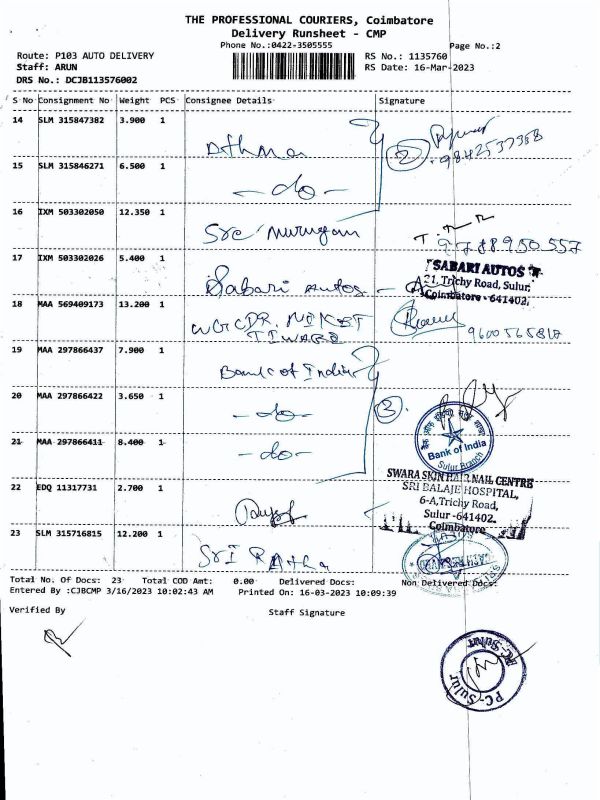 THE PROFESSIONAL COURIERS, Coimbatore
Delivery Runsheet - CMP
Phone No.:0422-3505555
Page No.:2
Route: P103 AUTO DELIVERY
RS No.: 1135760
Staff: ARUN
RS Date: 16-Mar-2023
DRS No.: DCJB113576002
S No Consignment No Weight PCS Consignee Details Signature
14 SLM 315847382 3.900 1
Athma
2
9842537368
15 SLM 315846271 6.500 1
- do -
16 IXM 503302050 12.350 1
Sre Murugan
9788950557
17 IXM 503302026 5.400 1
Sabari Autos -
SABARI AUTOS
21, Trichy Road, Sulur,
Coimbatore - 641402.
18 MAA 569409173 13.200 1
WGCDR. NIKET
TIWARI
9600565817
19 MAA 297866437 7.900 1
Bank of India
20 MAA 297866422 3.650 1
- do -
3
Bank of India
Sulur Branch
21 MAA 297866411 8.400 1
- do -
SWARA SKIN HAIR NAIL CENTRE
SRI BALAJE HOSPITAL,
6-A, Trichy Road,
Sulur - 641402.
Coimbatore
22 EDQ 11317731 2.700 1
23 SLM 315716815 12.200 1
Sri Ratha
Total No. Of Docs: 23 Total COD Amt: 0.00 Delivered Docs: Non Delivered Docs:
Entered By :CJBCMP 3/16/2023 10:02:43 AM Printed On: 16-03-2023 10:09:39
Verified By
Staff Signature
PC-Sulur
PC-Sulur